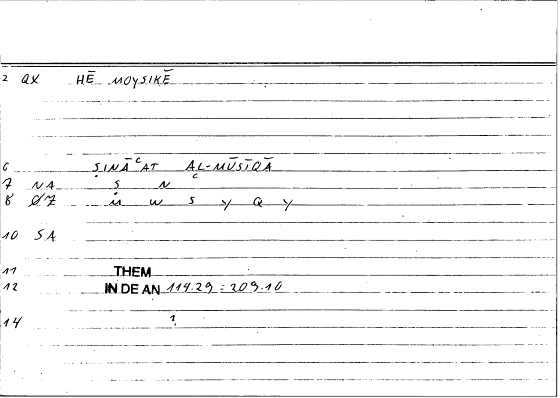 2 QX HĒ MOYSIKĒ
6 ṢINĀʿAT AL-MŪSĪQĀ
7 NA Ṣ N ʿ
8 Ø7 M W S Y Q Y
10 SA
11 THEM
12 IN DE AN 114.29 : 209.10
14 1.